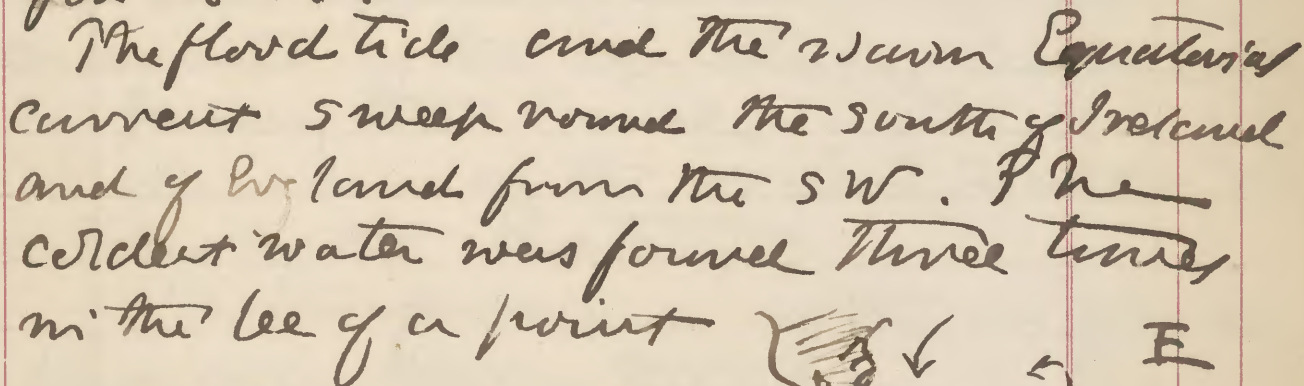 The flood tide and the warm Equatorial
current sweep round the south of Ireland
and of England from the SW. The
coldest water was found three times
in the lee of a point E